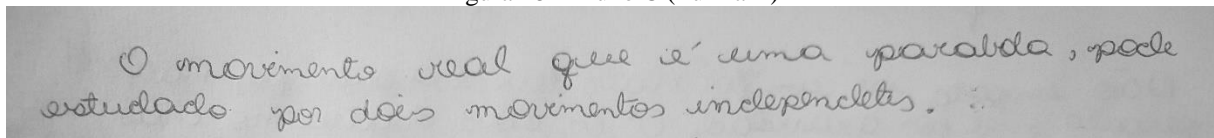 O movimento real que é uma parabola, pode
estudado por dois movimentos independetes.